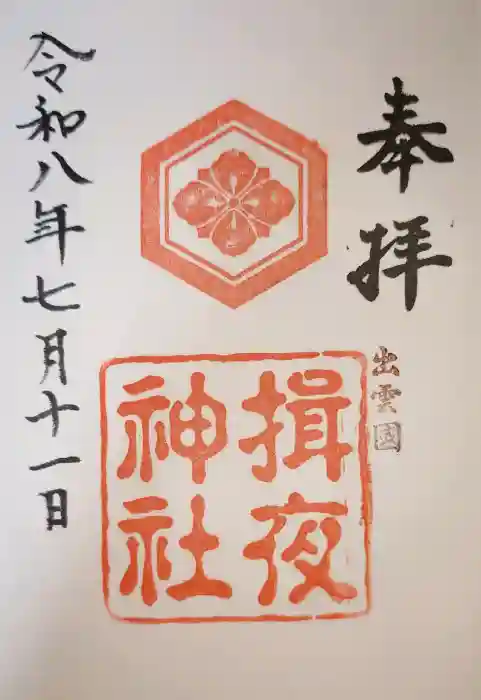 奉拝
出雲國
揖夜
神社
令和八年七月十一日